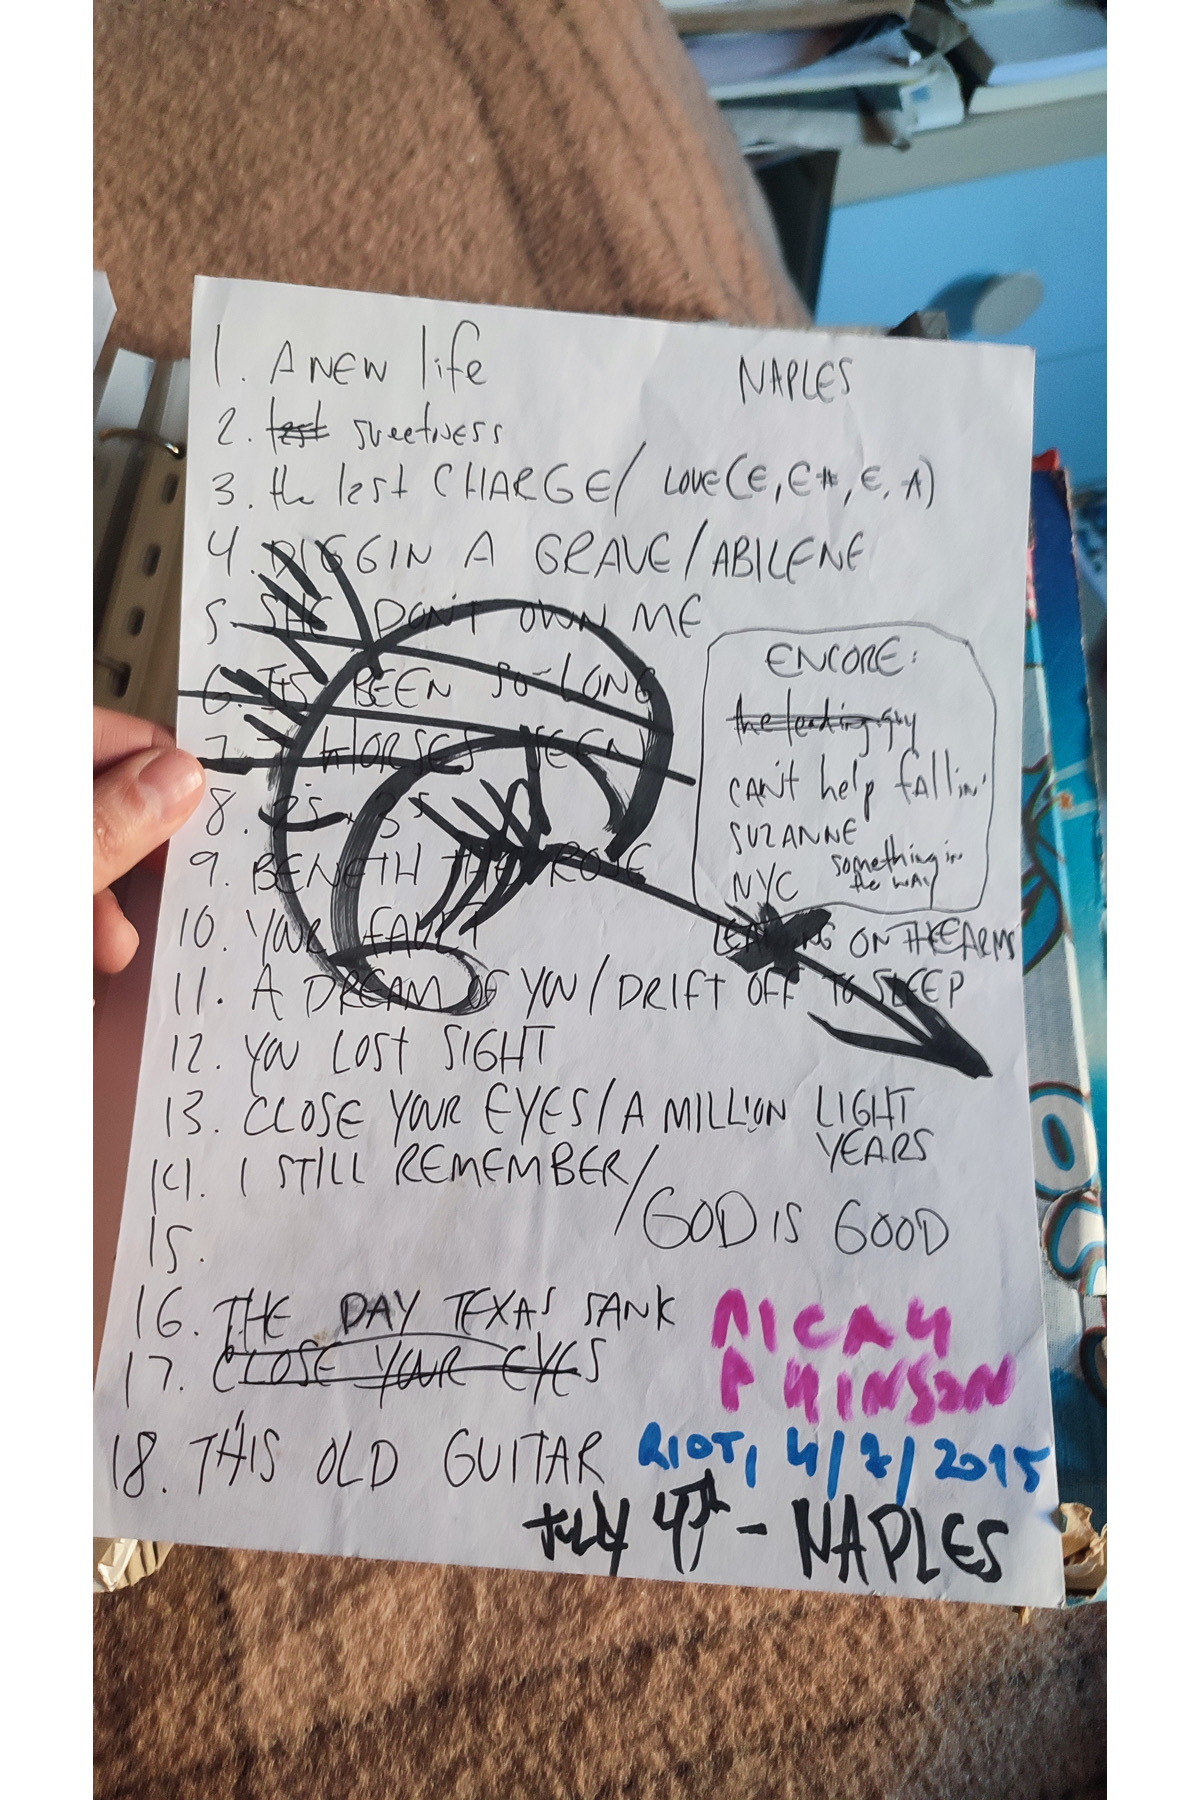 1. A NEW life
NAPLES
2. test sweetness
3. the last CHARGE/ LOVE (E, E#, E, A)
4. DIGGIN A GRAVE/ABILENE
5. SHE DON'T OWN ME
6. ITS BEEN SO LONG
7. HORSES
8. 2's 3's
9. BENETH THE ROSE
10. YOUR FAULT
ENCORE:
the leading guy
CAN'T help fallin'
SUZANNE
NYC something in
the way
LEANING ON THE ARMS
11. A DREAM OF YOU/DRIFT OFF TO SLEEP
12. YOU LOST SIGHT
13. CLOSE YOUR EYES/A MILLION LIGHT
YEARS
14. I STILL REMEMBER/
/GOD IS GOOD
15.
16. THE DAY TEXAS SANK
17. CLOSE YOUR EYES
18. THIS OLD GUITAR
MICAH
P HINSON
RIOT, 4/7/2015
JULY 4th - NAPLES